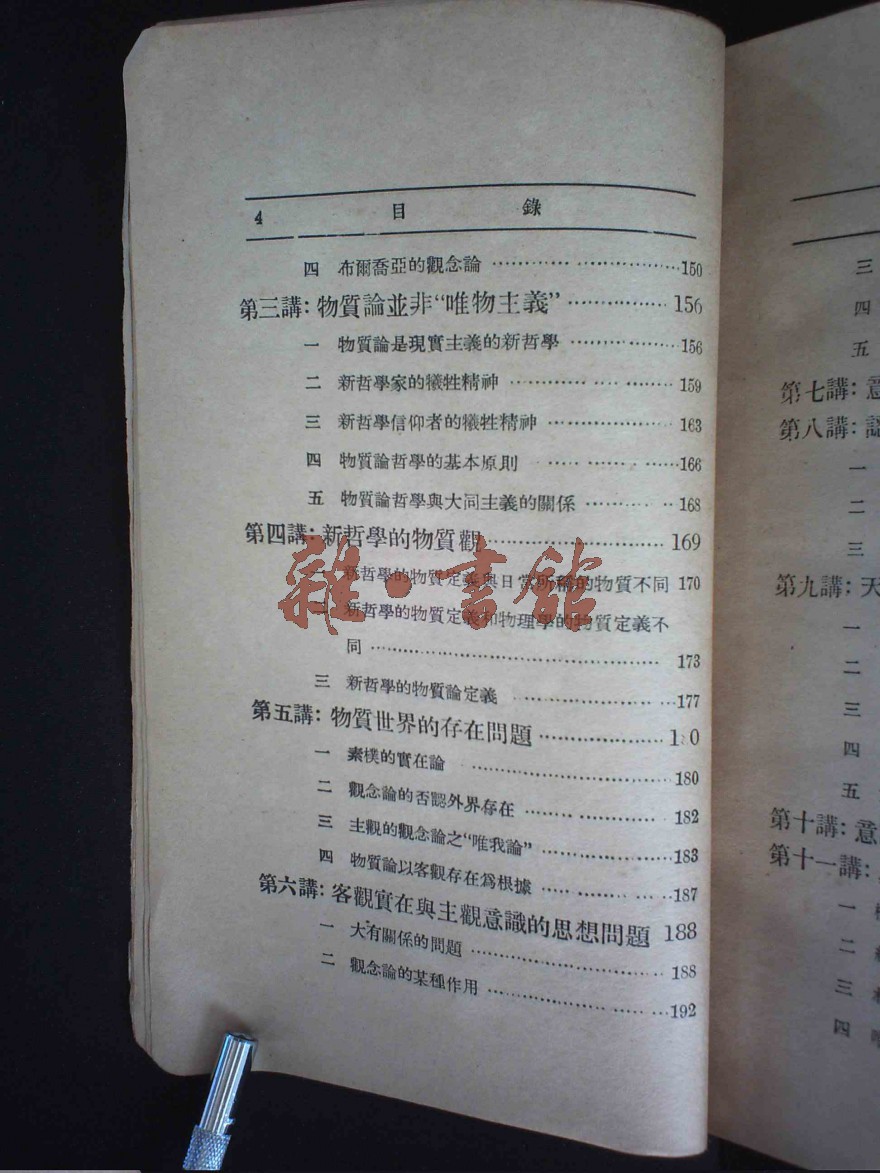 4 目 錄
四 布爾喬亞的觀念論 ……………………150
第三講：物質論並非“唯物主義”……………156
一 物質論是現實主義的新哲學 ……………156
二 新哲學家的犧牲精神 ……………………159
三 新哲學信仰者的犧牲精神 ………………163
四 物質論哲學的基本原則 …………………166
五 物質論哲學與大同主義的關係 …………168
第四講：新哲學的物質觀……………………169
一 新哲學的物質定義與日常所稱的物質不同 170
新哲學的物質定義和物理學的物質定義不
同 ……………………………………… 173
三 新哲學的物質論定義 ……………………177
第五講：物質世界的存在問題………………
一 素樸的實在論 ……………………………180
二 觀念論的否認外界存在 …………………182
三 主觀的觀念論之“唯我論” ………………183
四 物質論以客觀存在爲根據 ………………187
第六講：客觀實在與主觀意識的思想問題 188
一 大有關係的問題 …………………………188
二 觀念論的某種作用 ………………………192
雜·書館
三
四
五
第七講：意
第八講：認
一
二
三
第九講：天
一
二
三
四
五
第十講：意
第十一講：
一
二
三
四